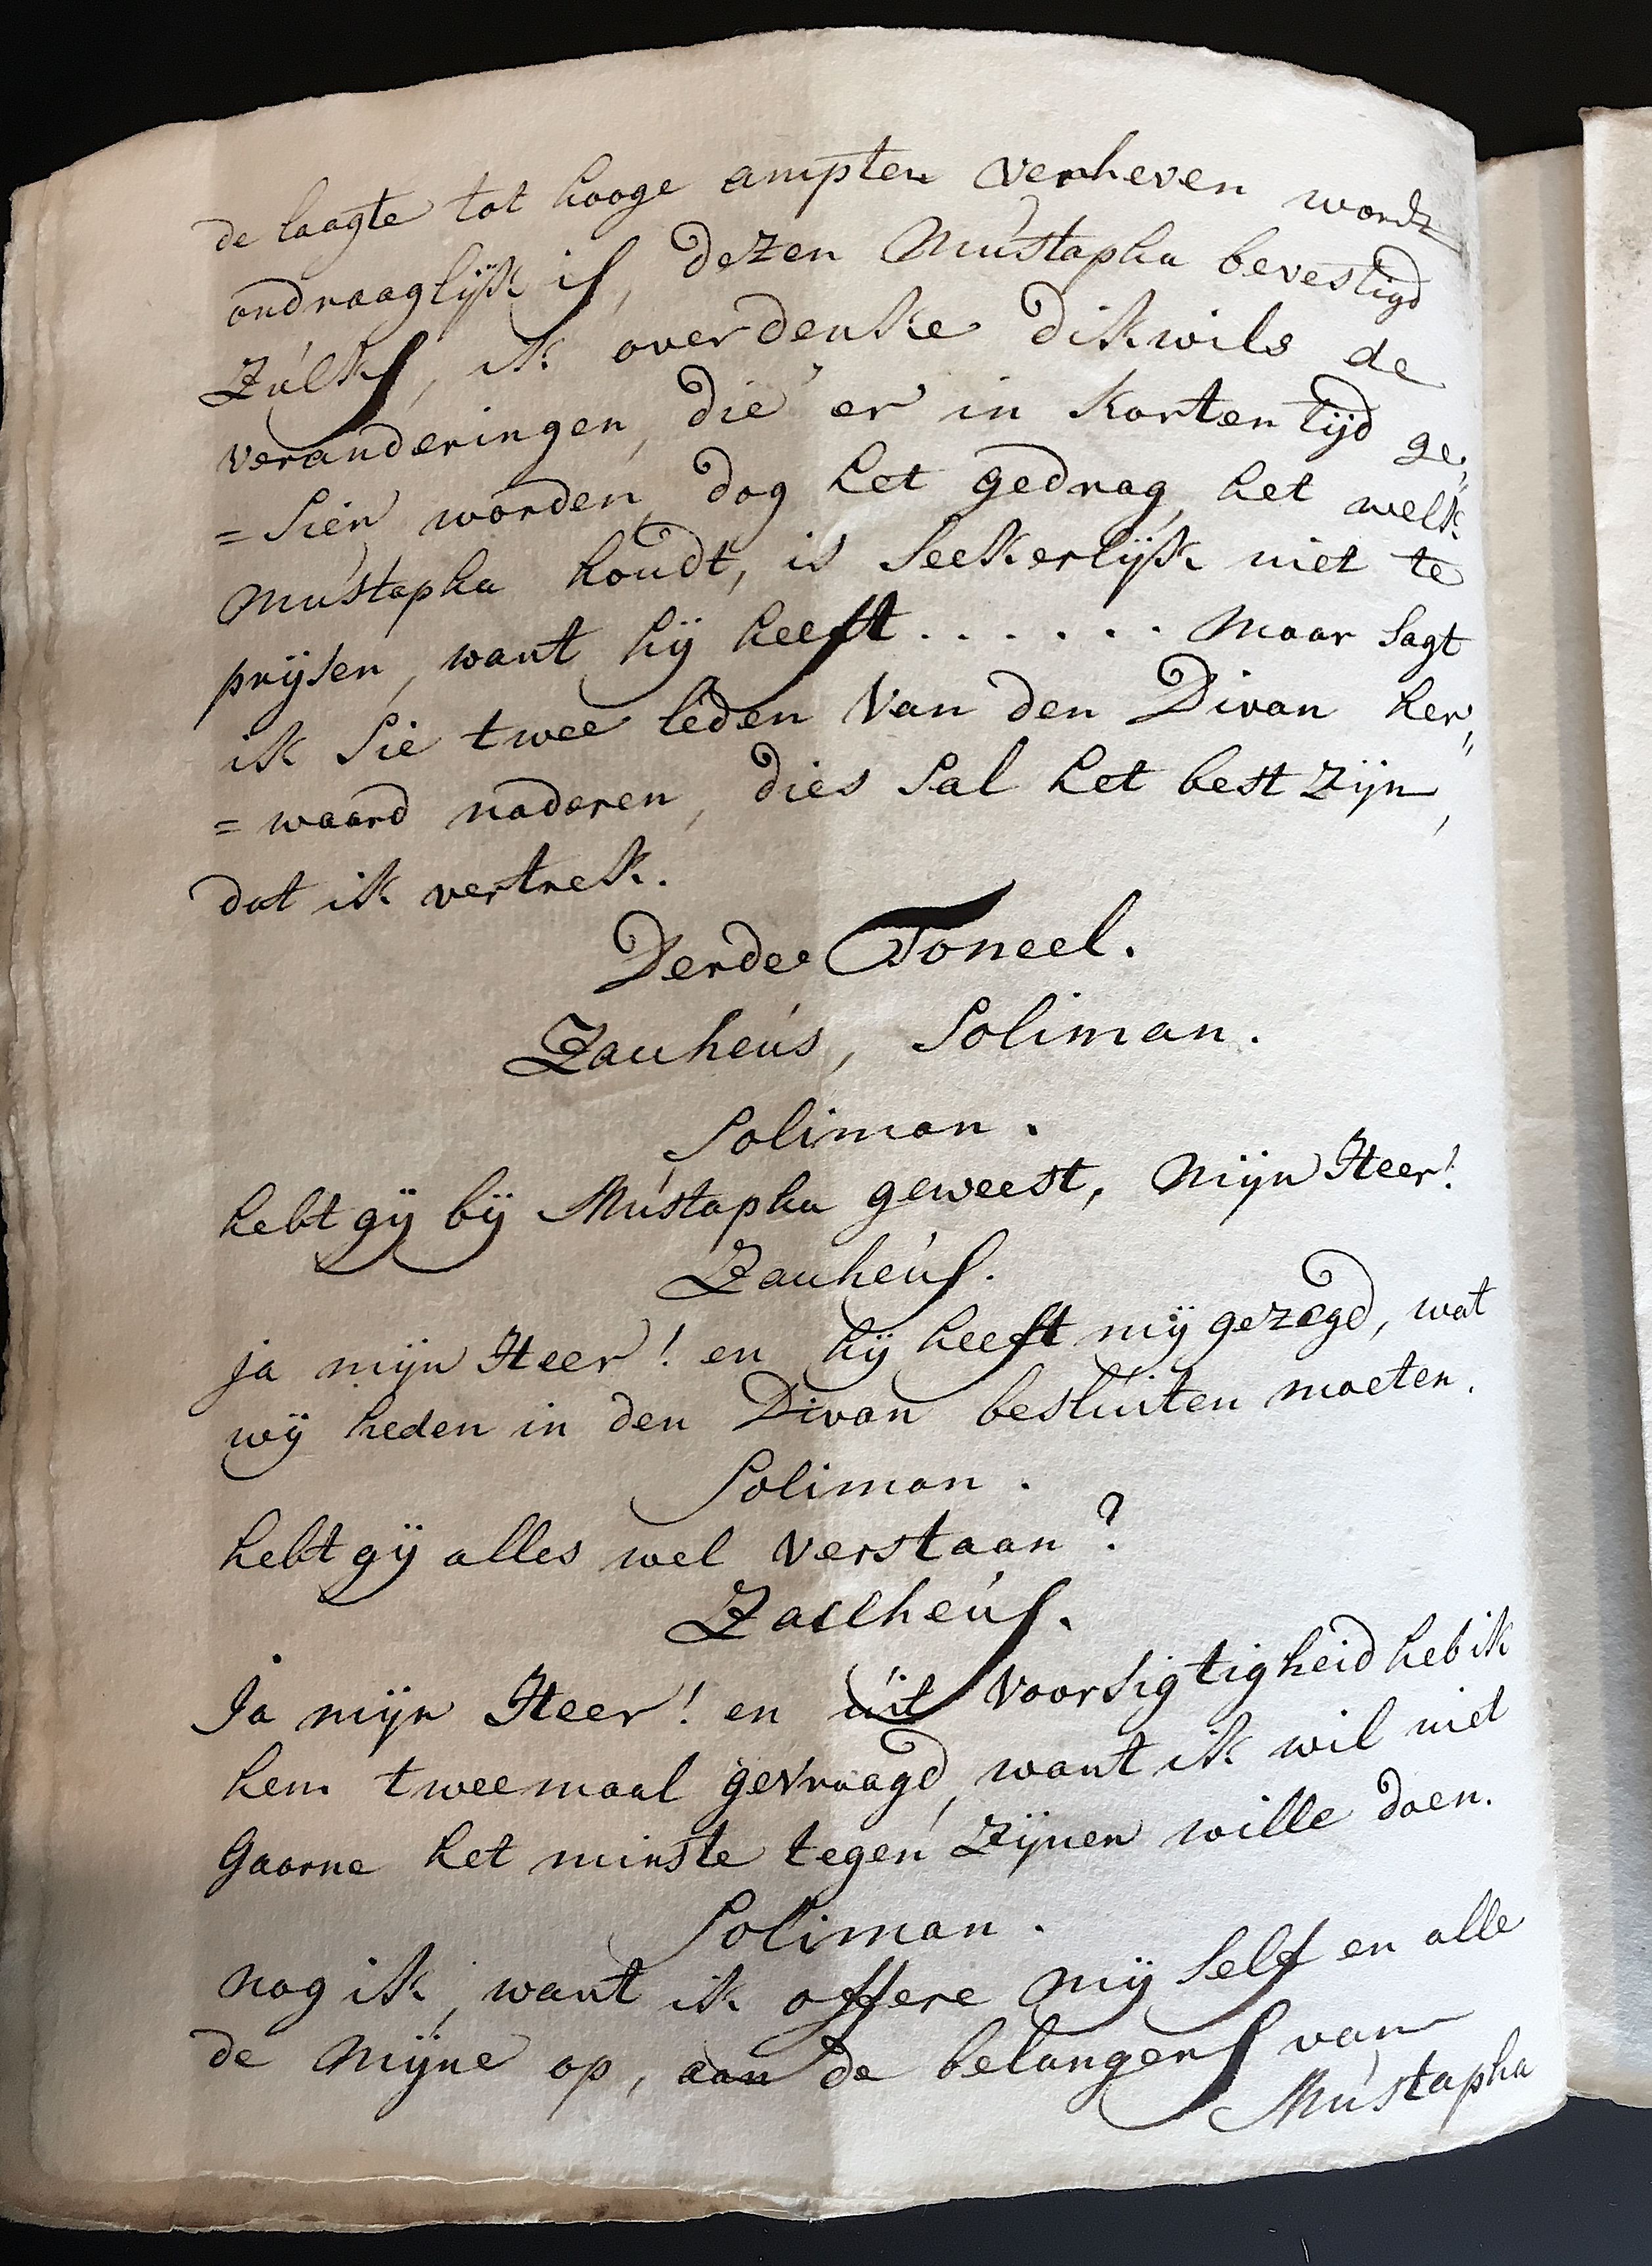 de laagte tot hooge ampten verheven wordt
ondraaglijk is, dezen Mustapha bevestigd
Zulks, ik overdenke dikwils de
veranderingen, die er in korten tijd ge„
= sien worden, dog het gedrag, het welk
Mustapha houdt, is seekerlijk niet te
prijsen, want hij heeft . . . . . . Maar sagt
ik sie twee leden van den Divan her„
= waard naderen, dies sal het best zijn,
dat ik vertrek.
Derde Toneel.
Zauheus, Soliman.
Soliman.
hebt gij bij Mustapha geweest, Mijn Heer!
Zauheus.
ja mijn Heer! en hij heeft mij gezegd, wat
wij heden in den Divan besluiten moeten.
Soliman.
hebt gij alles wel verstaan?
Zaccheus.
Ja mijn Heer! en uit voorsigtigheid heb ik
hem tweemaal gevraagd, want ik wil niet
Gaarne het minste tegen zijnen wille doen.
Soliman.
nog ik, want ik offere mij self en alle
de Mijne op, aan de belangens van
Mustapha